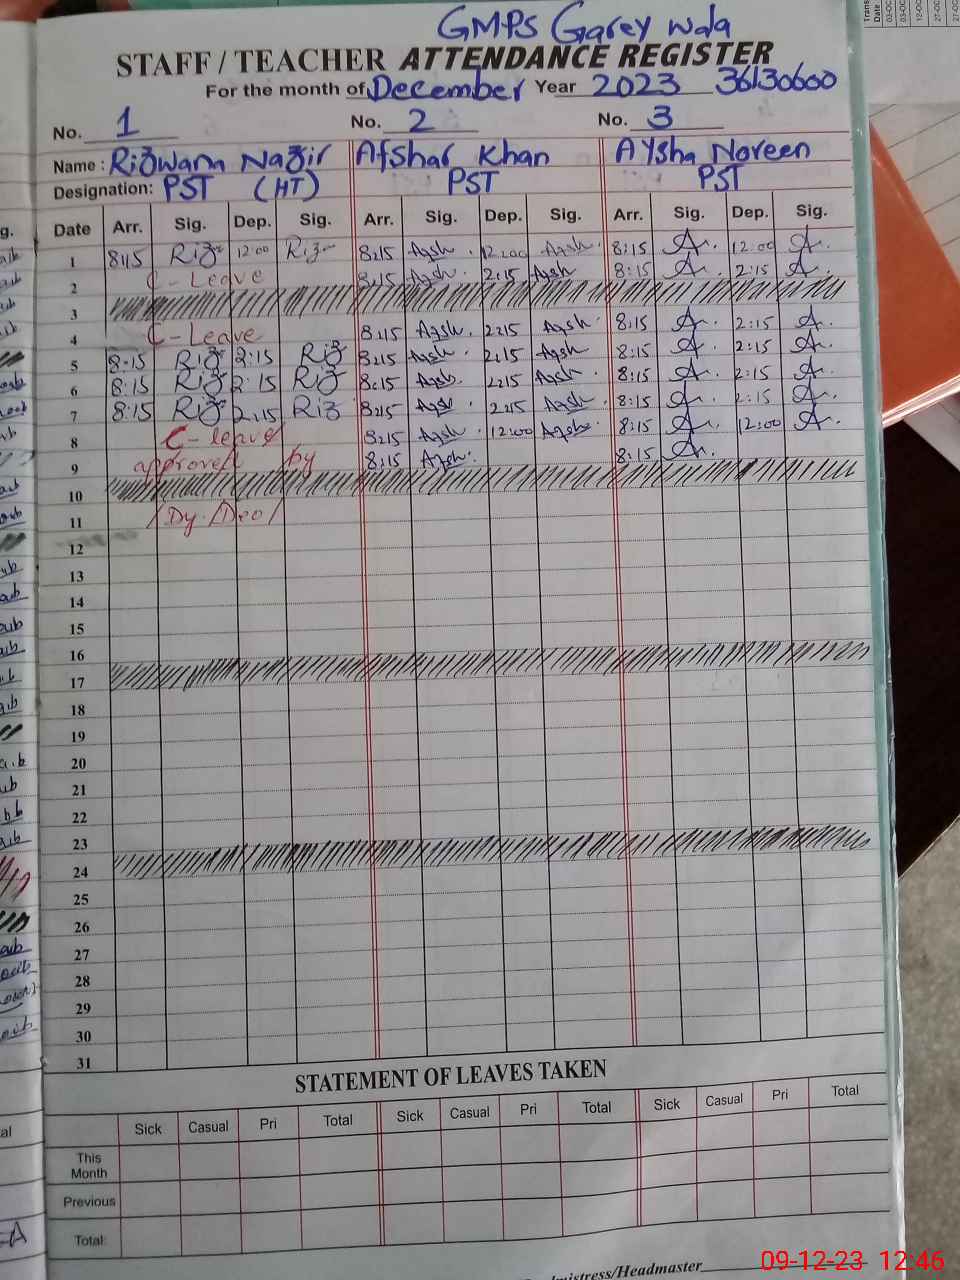 GMPS Garey wala
STAFF / TEACHER ATTENDANCE REGISTER
For the month of December Year 2023 36130600
No. 1 No. 2 No. 3
Name : Rizwana Nazir Afshar Khan Aysha Noreen
Designation: PST (HT) PST PST
Date Arr. Sig. Dep. Sig. Arr. Sig. Dep. Sig. Arr. Sig. Dep. Sig.
1 8:15 Riz 12:00 Riz 8:15 12:00 8:15 A. 12:00 A.
2 C-Leave 8:15 2:15 8:15 A. 2:15 A.
3
4 C-Leave 8:15 2:15 8:15 A. 2:15 A.
5 8:15 Riz 2:15 Riz 8:15 2:15 8:15 A. 2:15 A.
6 8:15 Riz 2:15 Riz 8:15 2:15 8:15 A. 2:15 A.
7 8:15 Riz 2:15 Riz 8:15 2:15 8:15 A. 2:15 A.
8 C-leave 8:15 12:00 8:15 A. 12:00 A.
9 approved by 8:15 8:15 A.
10
11 Dy. Deo
12
13
14
15
16
17
18
19
20
21
22
23
24
25
26
27
28
29
30
31
STATEMENT OF LEAVES TAKEN
Sick Casual Pri Total Sick Casual Pri Total Sick Casual Pri Total
This Month
Previous
Total:
mistress/Headmaster
09-12-23 12:46